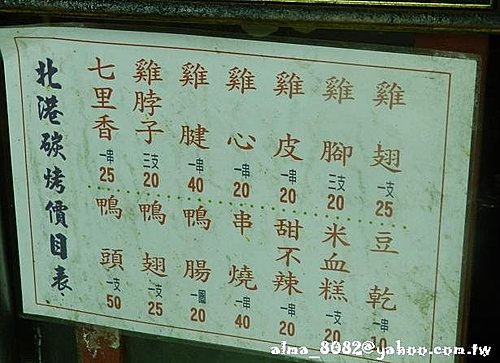 北港碳烤價目表
七里香 一串 25
雞脖子 三支 20
雞腱 一串 40
雞心 一串 20
雞皮 一串 20
雞腳 三支 20
雞翅 一支 25
鴨頭 一支 50
鴨翅 一支 25
鴨腸 一圈 20
串燒 一串 40
甜不辣 一串 20
米血糕 一支 20
豆乾 一串
alma_8082@yahoo.com.tw